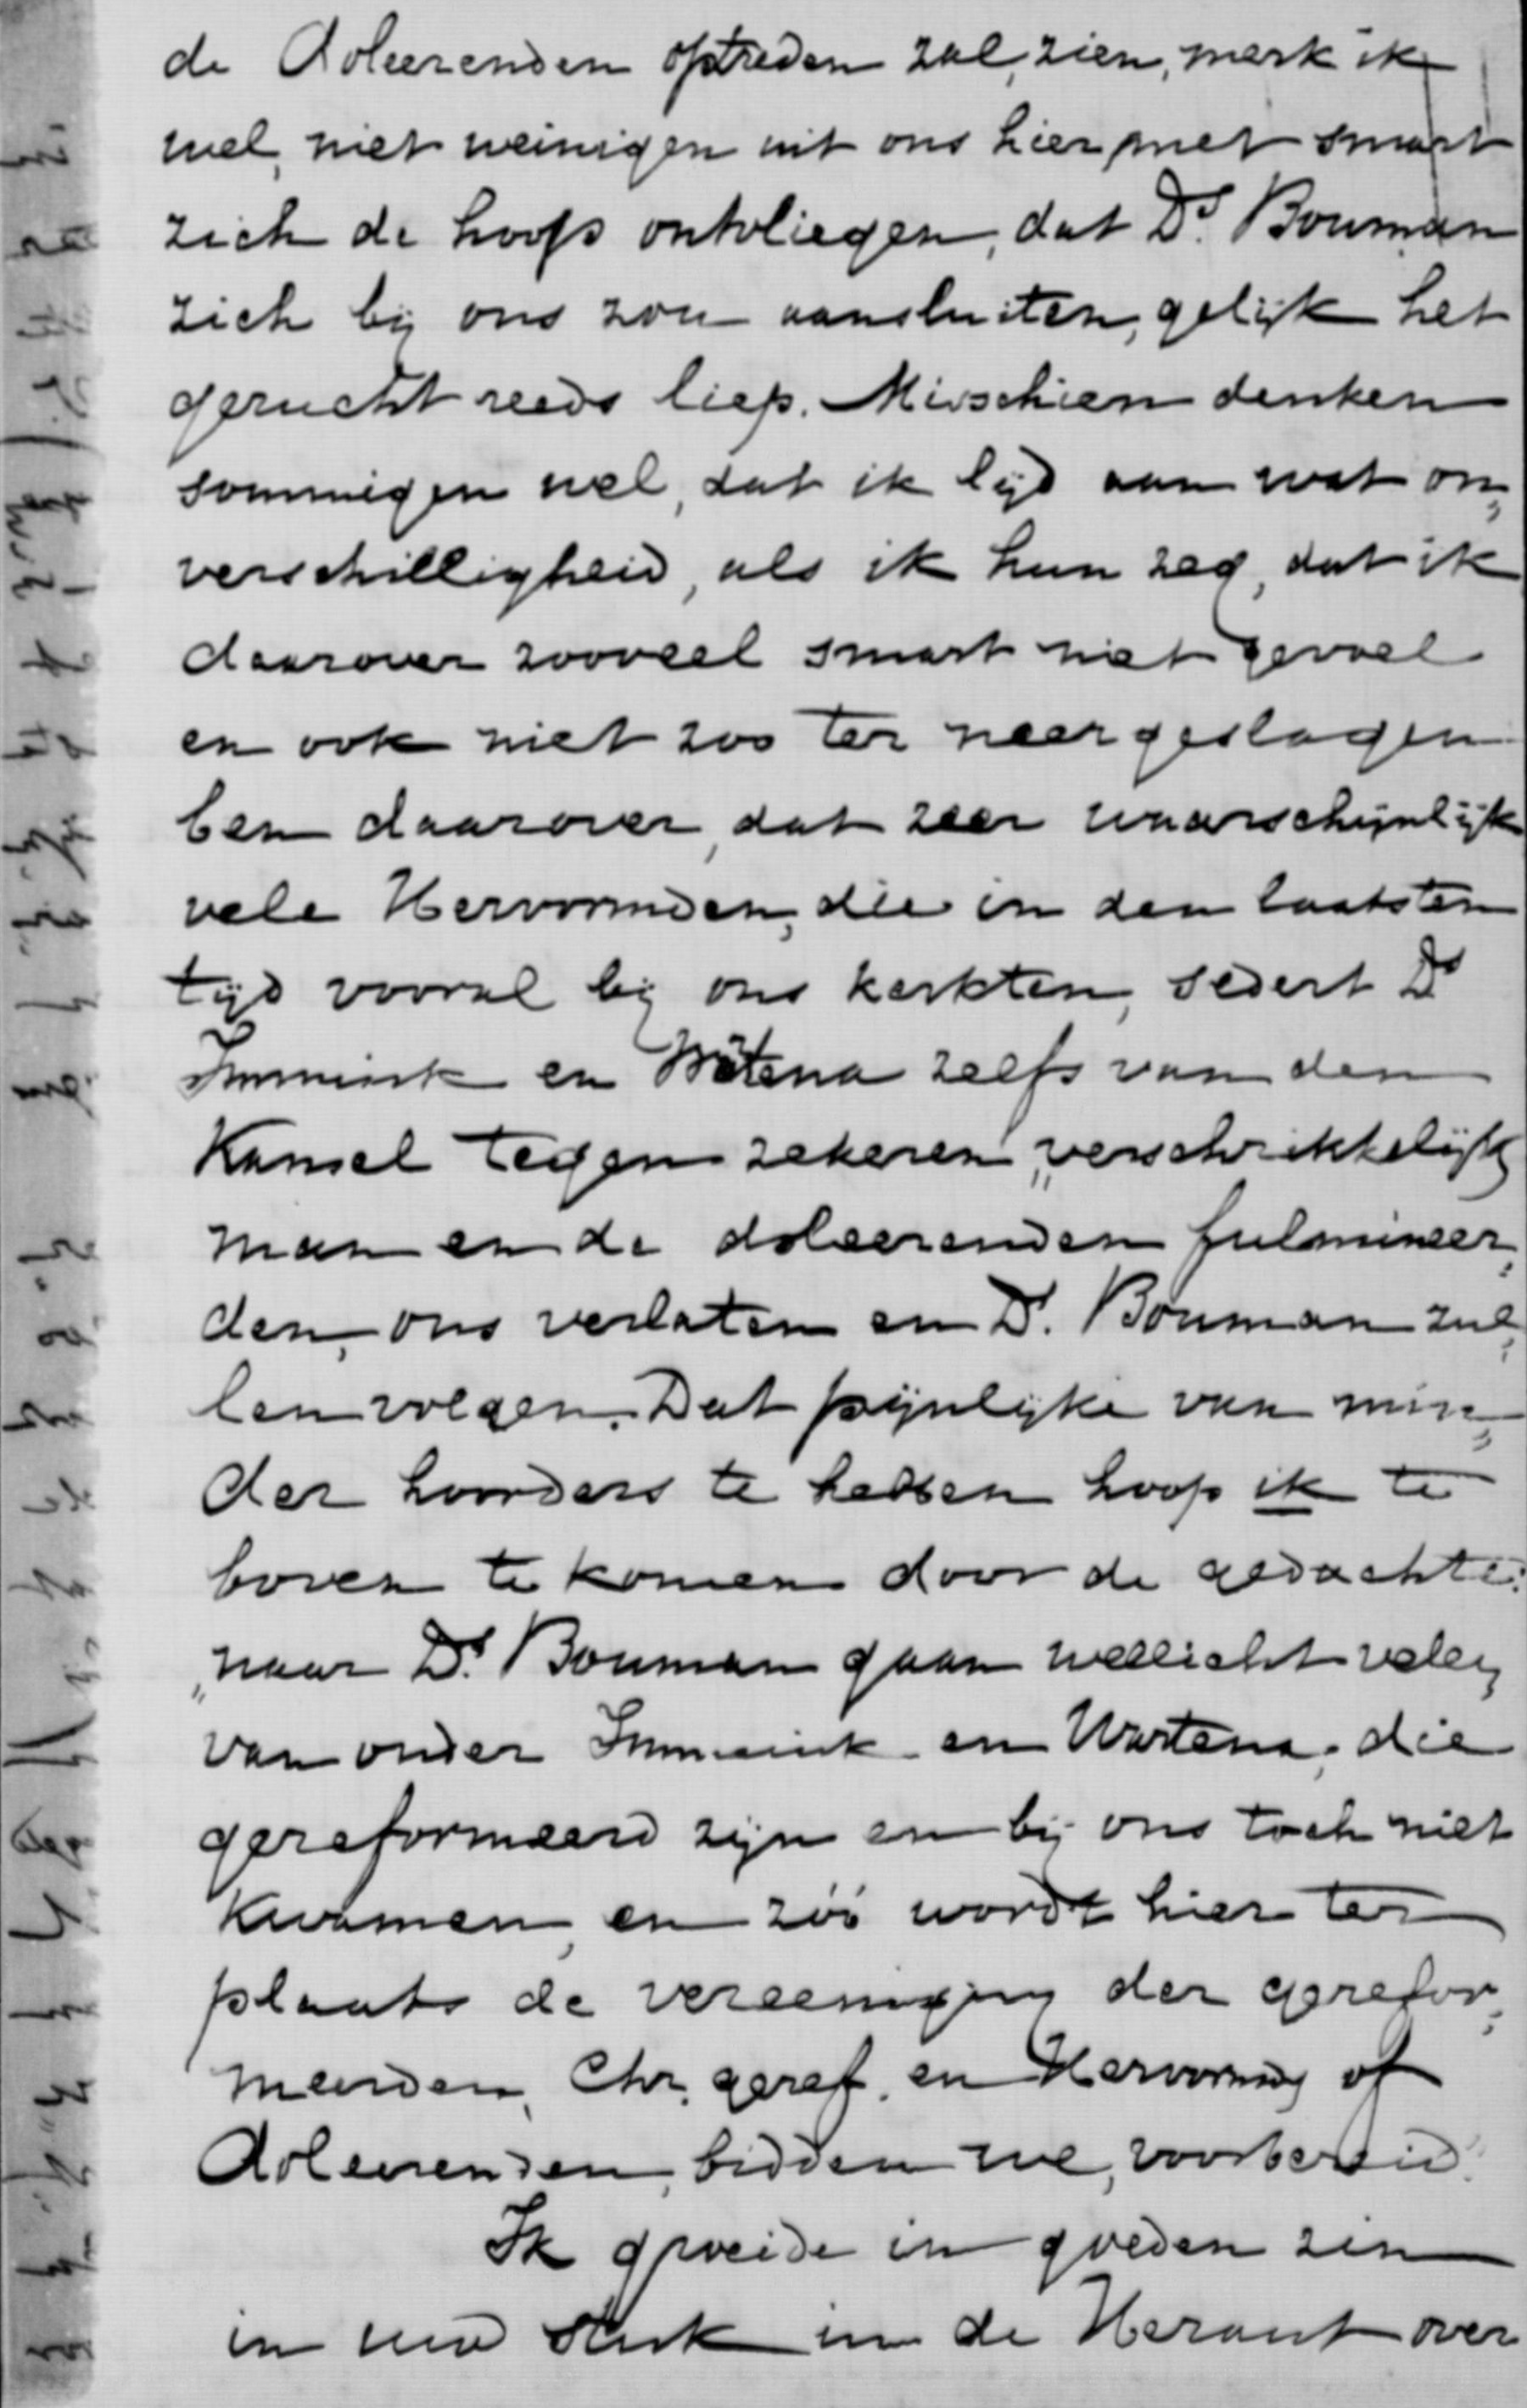 de Doleerenden optreden zal, zien, merk ik
wel, niet weinigen uit ons hier met smart
zich de hoop ontvliegen, dat Ds. Bouman
zich bij ons zou aansluiten, gelijk het
gerucht reeds liep. Misschien denken
sommigen wel, dat ik lijd aan wat on„
verschilligheid, als ik hun zeg, dat ik
daarover zooveel smart niet gevoel
en ook niet zoo ter neergeslagen
ben daarover, dat zeer waarschijnlijk
vele Hervormden, die in den laatsten
tijd vooral bij ons kerkten, sedert Ds
Immink en Wartena zelfs van den
Kansel tegen zekeren „verschrikkelijk
man en de doleerenden fulmineer„
den, ons verlaten en Ds. Bouman zul„
len volgen. Dat pijnlijke van min„
der hoorders te hebben hoop ik te
boven te komen door de gedachte:
„naar Ds. Bouman gaan wellicht velen
van onder Immink en Wartena, die
gereformeerd zijn en bij ons toch niet
kwamen, en zóó wordt hier ter
plaats de vereeniging der gerefor„
meerden, Chr. geref. en Hervormd of
Doleerenden, bidden we, voorbereid."
Ik groeide in goeden zin
in uw stuk in de Heraut over